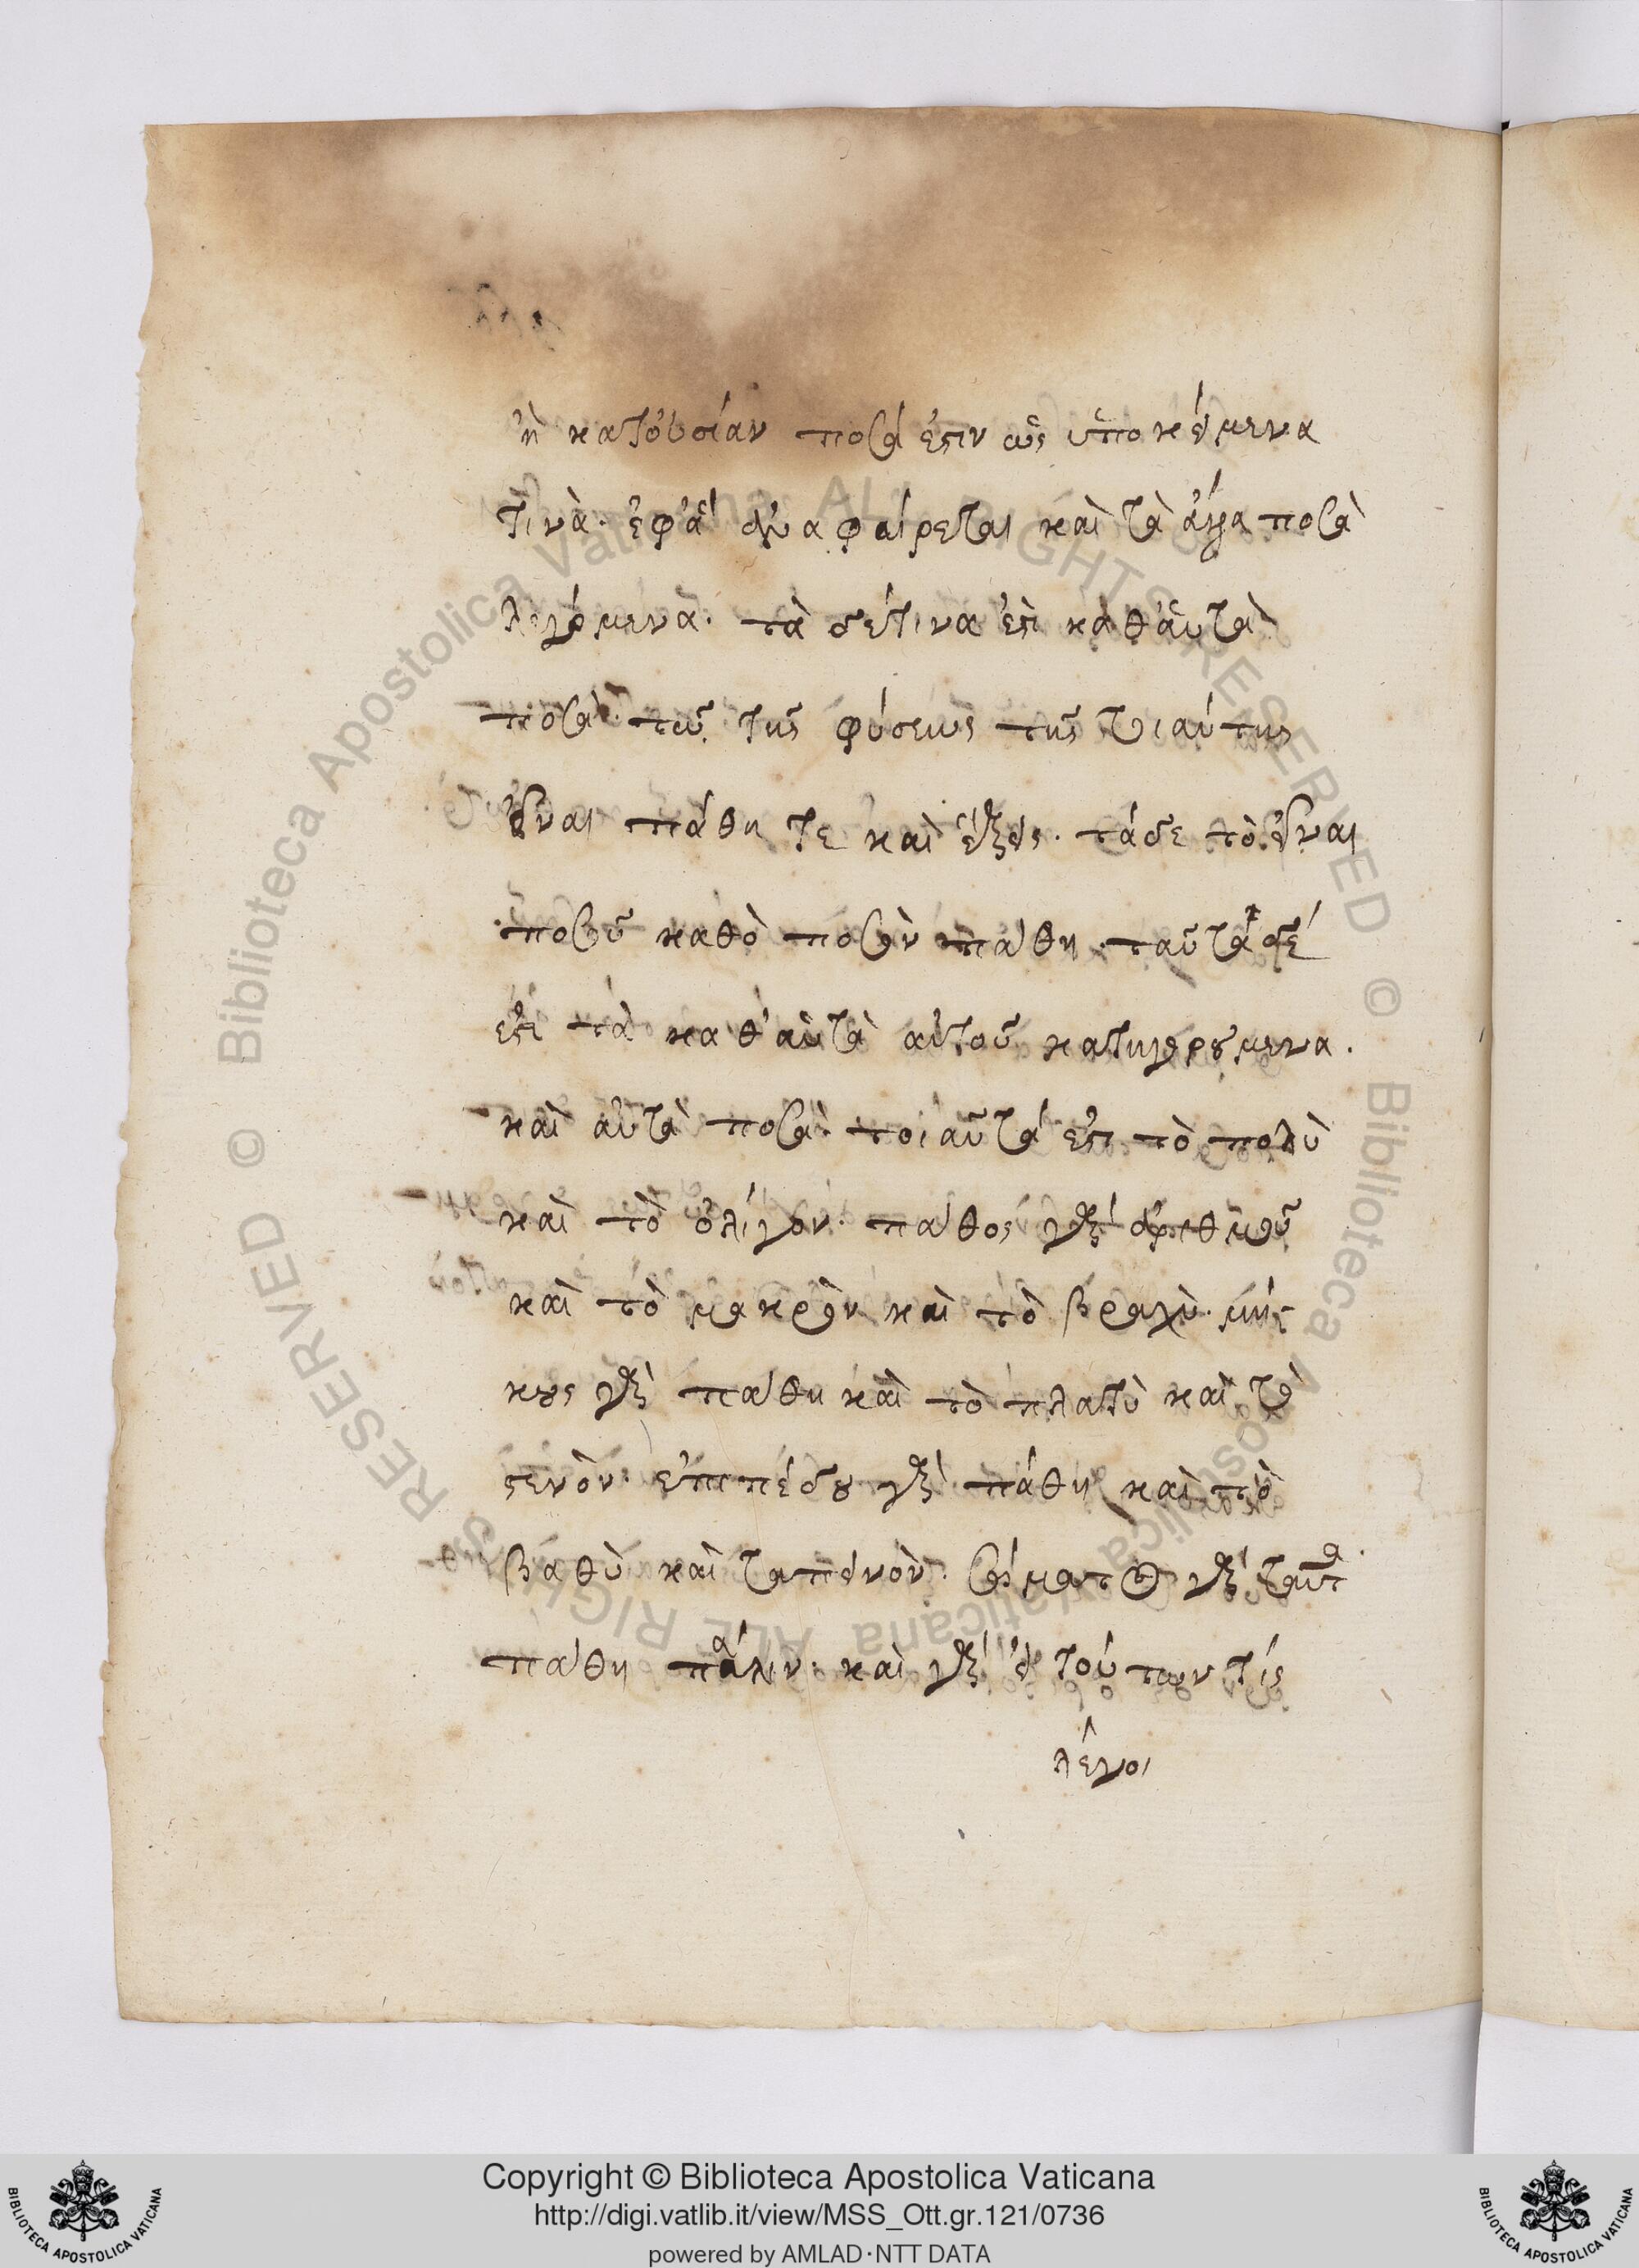 ἢ κατοὐσίαν ποσά ἐστιν ὡς ὑποκείμενα
τινὰ· ἐφἃ ἀναφαίρεται καὶ τὰ ἄλλα ποσὰ
λεγόμενα· τὰ δέτινα ἐστὶ καθ᾽αὑτὰ
ποσὰ· τῷ τῆς φύσεως τῆς τοιαύτης
εἶναι πάθη τε καὶ ἕξεις· τάδε τὸ εἶναι
ποσοῦ καθὸ ποσὸν πάθη· ταῦτα δέ
ἐστι τὰ καθ᾽αὑτὰ αὐτοῦ κατηγορούμενα.
καὶ αὐτὰ ποσὰ· τοιαῦτά ἐστι τὸ πολὺ
καὶ τὸ ὀλίγον· πάθος γὰρ ἀριθμοῦ
καὶ τὸ μακρὸν καὶ τὸ βραχὺ· μή
κους γὰρ πάθη καὶ τὸ πλατὺ καὶ τὸ
στενὸν· ἐπιπέδου γὰρ πάθη καὶ τὸ
βαθὺ καὶ ταπεινὸν· σώματος γὰρ ταῦτα
πάθη πάλιν· καὶ γὰρ εἰ τούτων τίς
λέγοι
Copyright © Biblioteca Apostolica Vaticana
http://digi.vatlib.it/view/MSS_Ott.gr.121/0736
powered by AMLAD·NTT DATA
BIBLIOTECA APOSTOLICA VATICANA
BIBLIOTECA APOSTOLICA VATICANA